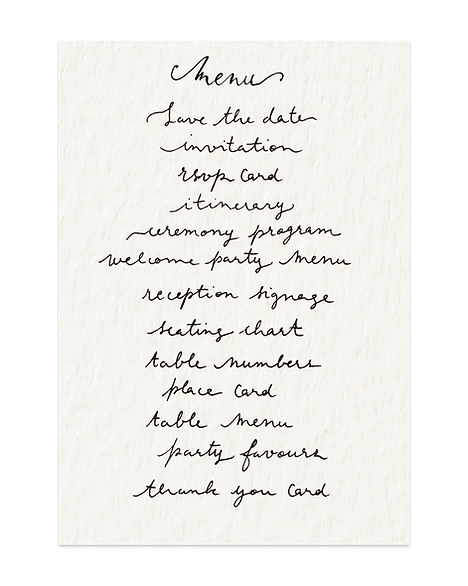 Menu
Save the date
invitation
rsvp card
itinerary
ceremony program
welcome party menu
reception signage
seating chart
table numbers
place card
table menu
party favours
thank you card